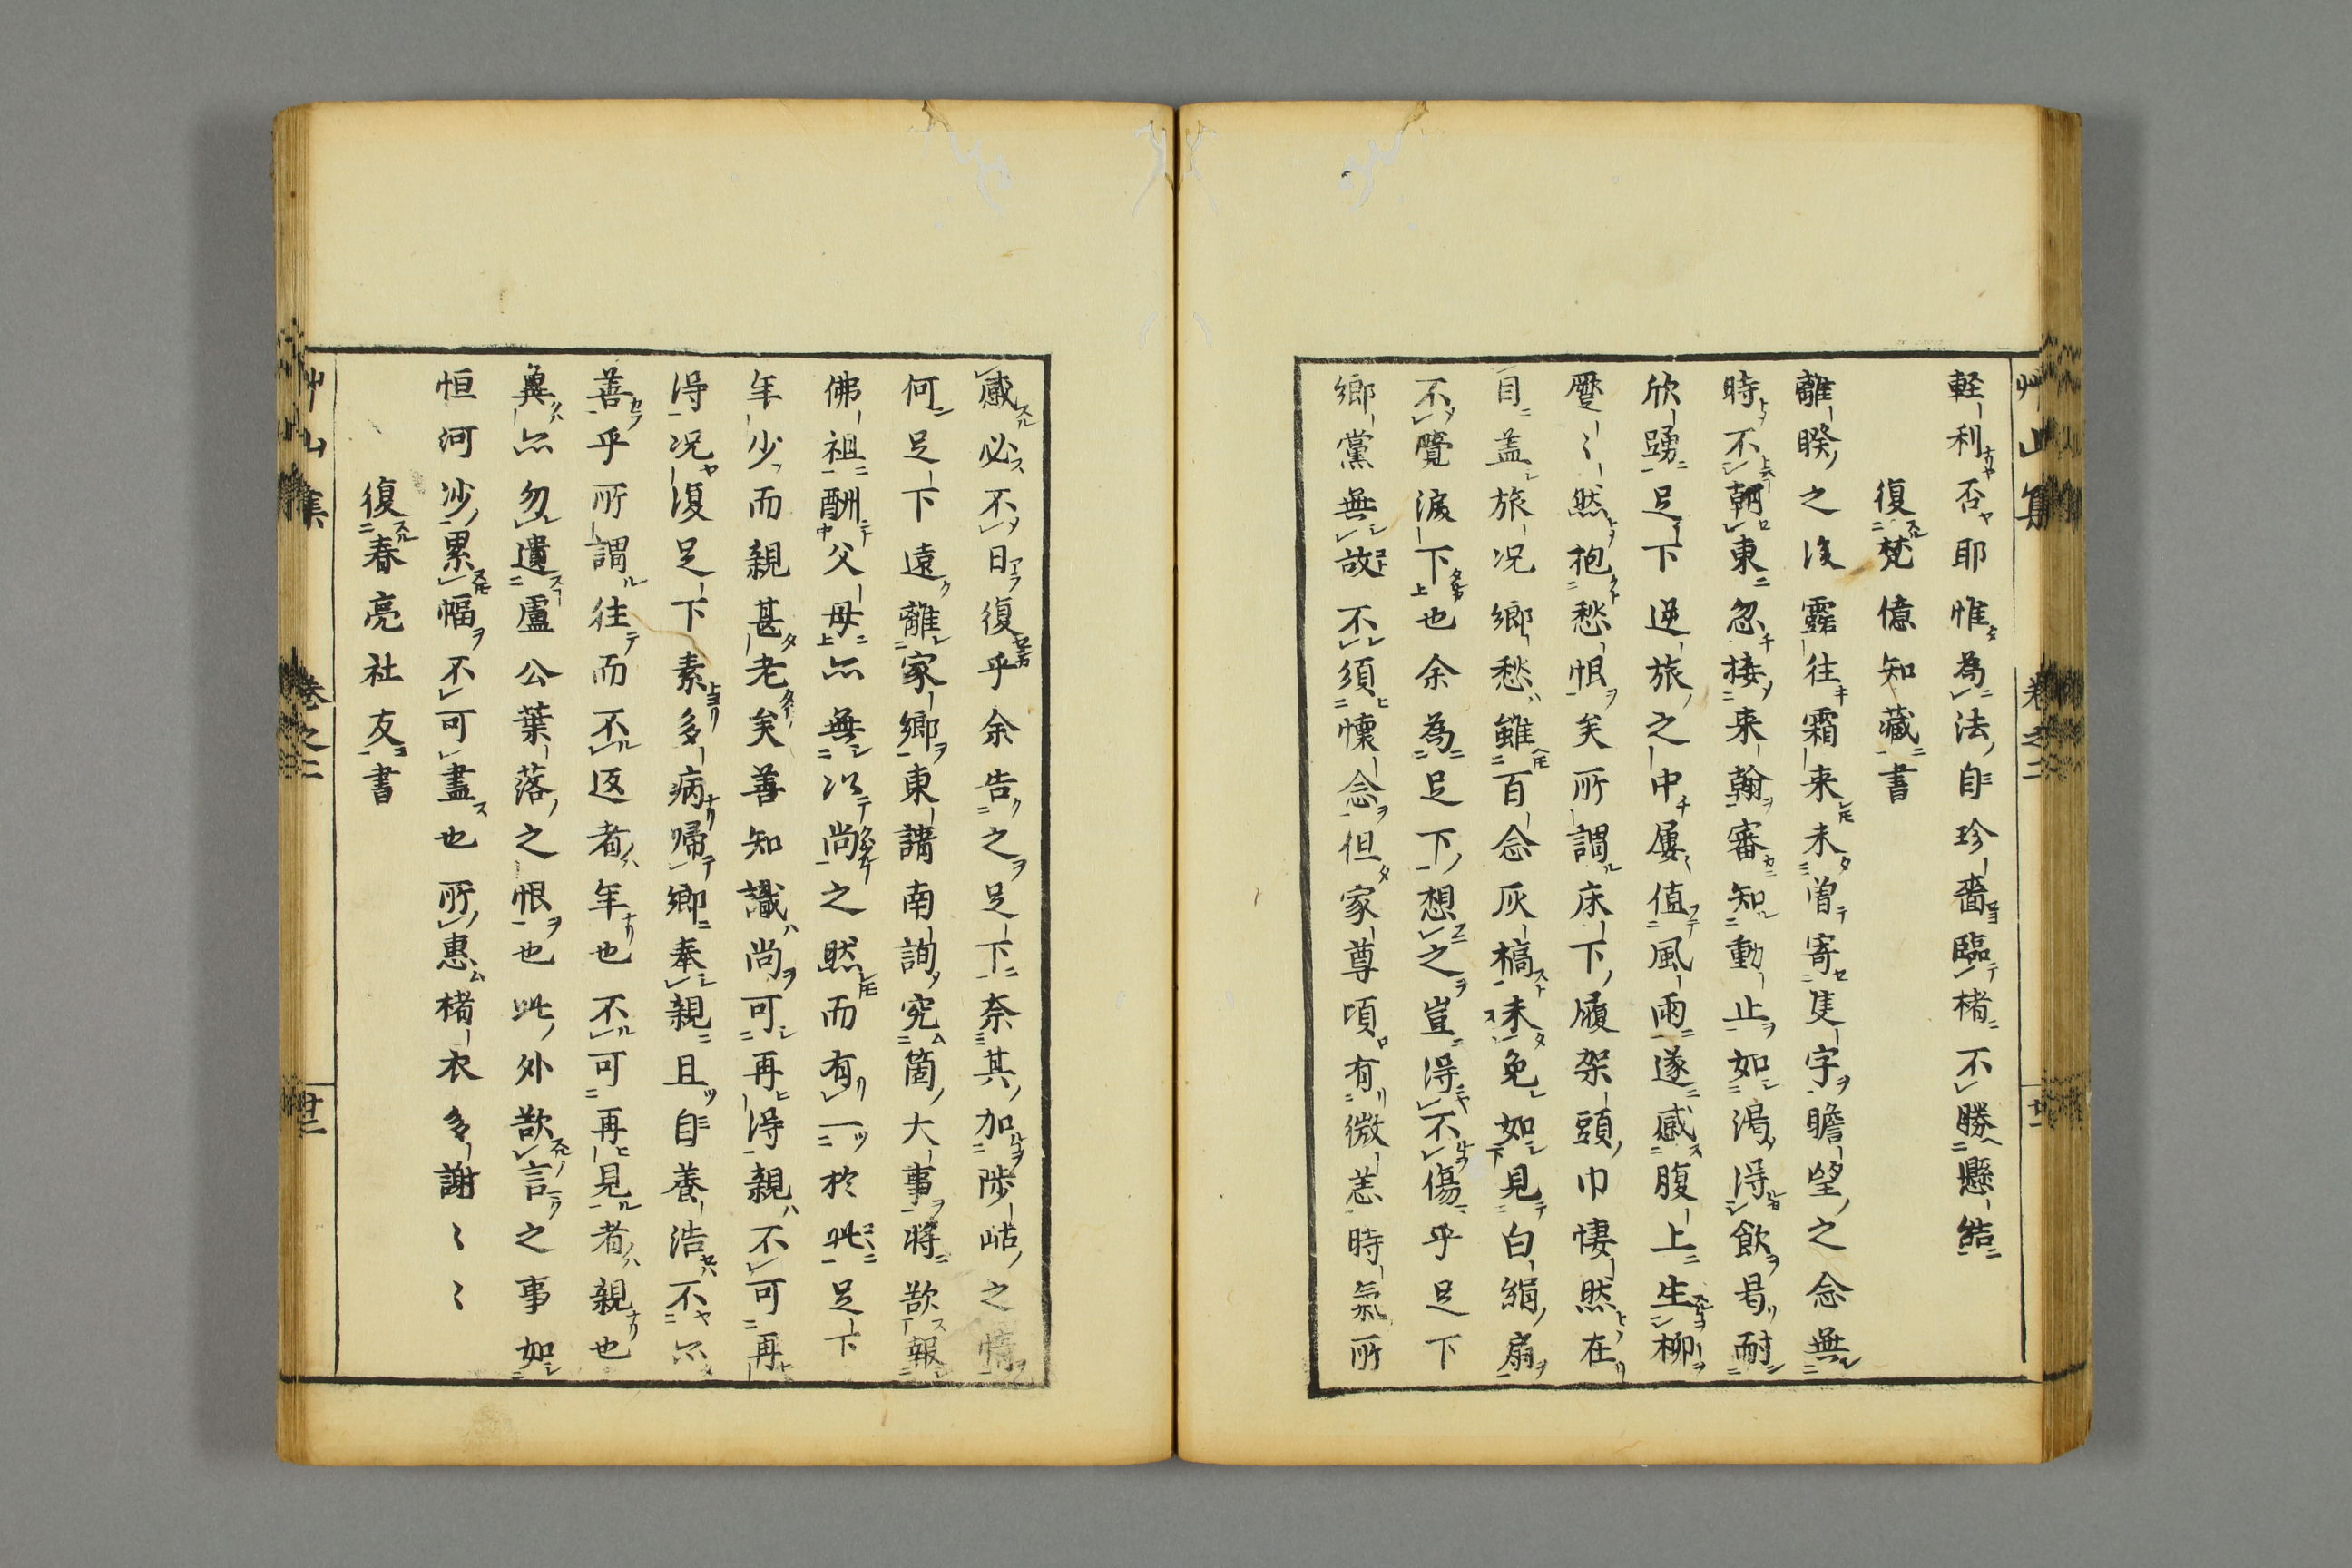 艸山集 卷之二
輕利否耶惟為法自珍嗇臨楮不勝懸結
復梵億知藏書
離睽之後露往霜來未曽寄隻字瞻望之念無
時不朝東忽接来翰審知動止如渴得飲曷耐
欣踴足下逆旅之中屢値風雨遂感腹上生柳
蹙〻然抱愁恨矣所謂床下履架頭巾悽然在
目盖旅况鄉愁雖百念灰槁未免如見白絹扇
不覺淚下也余為足下想之豈得不傷乎足下
鄉黨無故不須懐念但家尊頃有微恙時氣所
感必不日復乎余告之足下奈其加陟岵之情
何足下遠離家鄉東請南詢究箇大事將欲報
佛祖酬父母亦無以尚之然而有一於此足下
年少而親甚老矣善知識尚可再得親不可再
得况復足下素多病歸鄉奉親且自養浩不亦
善乎所謂往而不返者年也不可再見者親也
兾亦勿遺盧公葉落之恨也此外欲言之事如
恒河沙累幅不可盡也所惠楮衣多謝〻〻
復春亮社友書
艸山集 卷之二